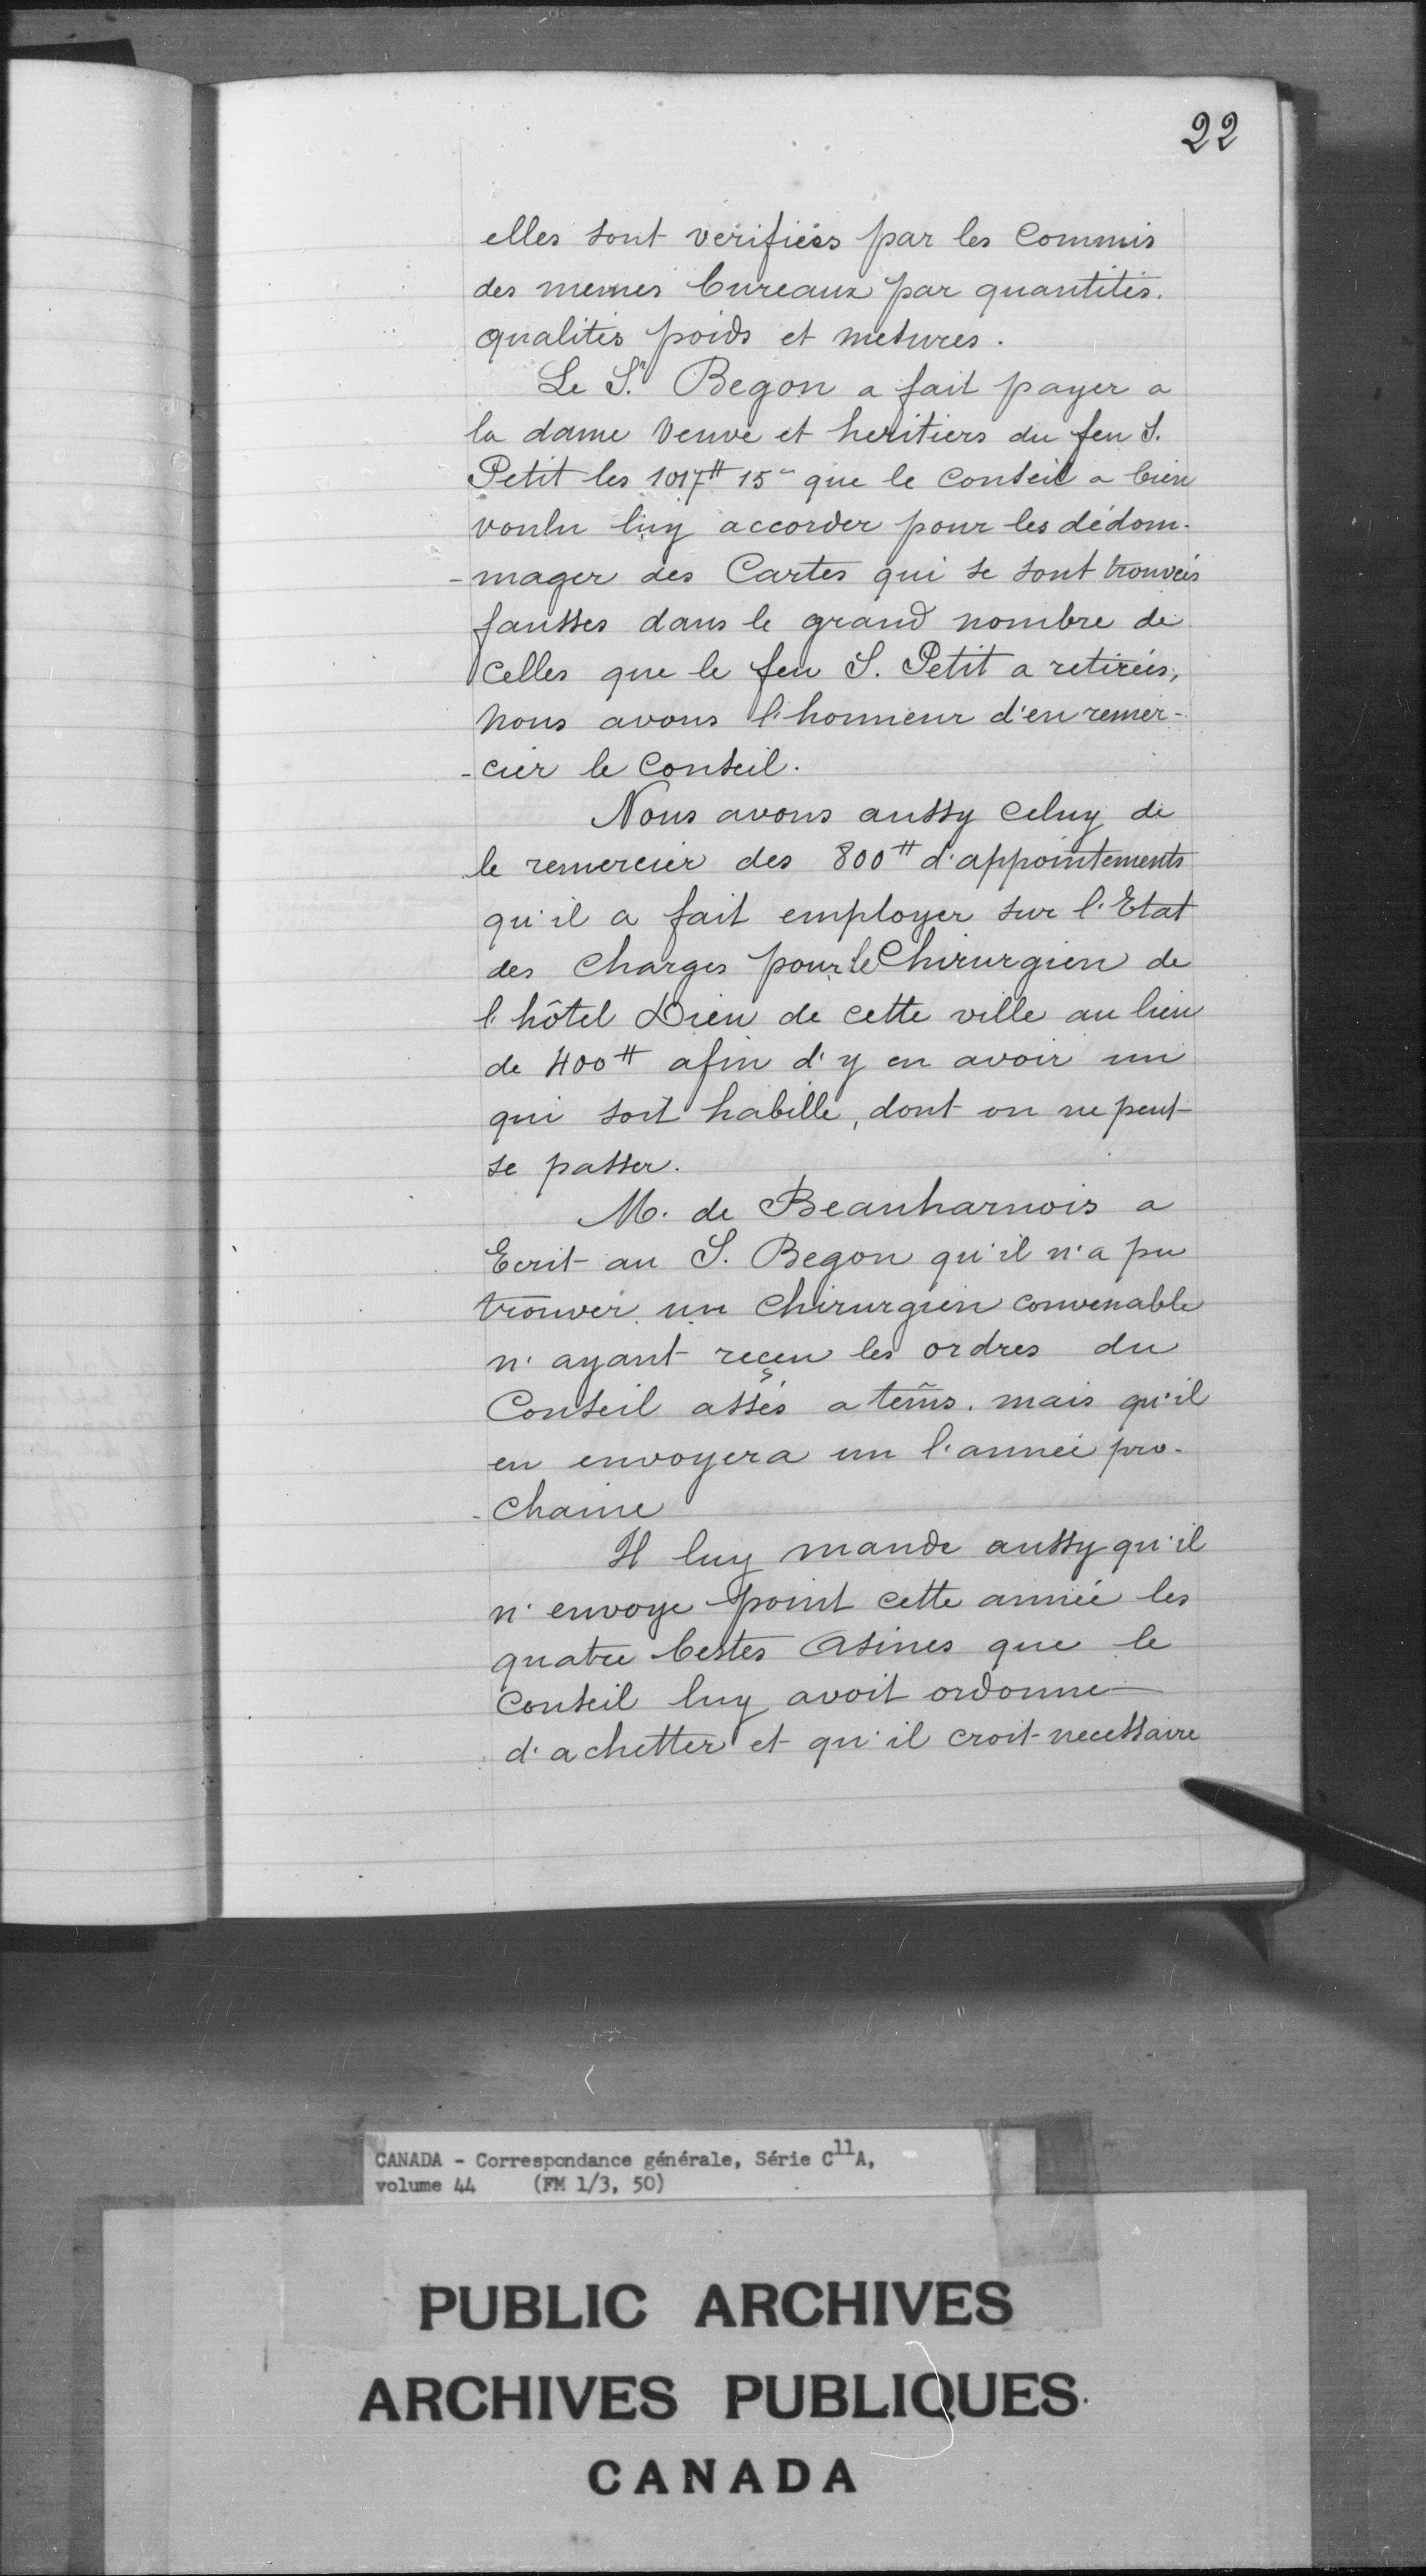 22
elles sont verifiées par les Commis
des memes bureaux par quantités.
qualités poids et mesures.
Le Sr. Begon a fait payer a
la dame Veuve et heritiers du feu S.
Petit les 1017# 15s que le Conseil a bien
voulu luy accorder pour les dédom-
-mager des Cartes qui se sont trouvées
fausses dans le grand nombre de
Celles que le feu S. Petit a retirées,
Nous avons l'honneur d'en remer-
-cier le Conseil.
Nous avons aussy Celuy de
le remercier des 800# d'appointements
qu'il a fait employer sur l'Etat
des Charges pour le Chirurgien de
l'hôtel Dieu de cette ville au lieu
de 400# afin d'y en avoir un
qui soit habille, dont on ne peut
se passer.
M. de Beauharnois a
Ecrit au S. Begon qu'il n'a pu
trouver un Chirurgien convenable
n'ayant reçeu les ordres du
Conseil assés a tem̃s. mais qu'il
en envoyera un l'année pro-
-chaine
Il luy mande aussy qu'il
n'envoye point cette année les
quatre bestes Asines que le
Conseil luy avoit ordonné
d'achetter et qu'il croit necessaire
CANADA - Correspondance générale, Série C11A,
volume 44 (FM 1/3, 50)
PUBLIC ARCHIVES
ARCHIVES PUBLIQUES
CANADA